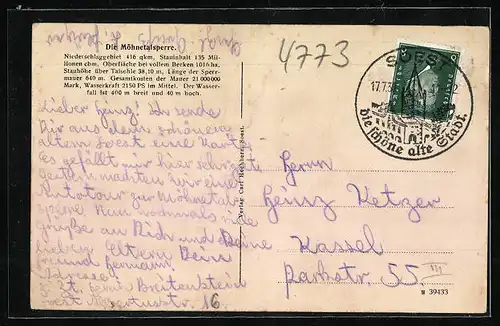 Die Möhnetalsperre.
Niederschlaggebiet 416 qkm, Stauinhalt 135 Mil-
lionen cbm. Oberfläche bei vollem Becken 1016 ha,
Stauhöhe über Talsohle 38,10 m, Länge der Sperr-
mauer 640 m. Gesamtkosten der Mauer 21 000 000
Mark, Wasserkraft 2150 PS im Mittel. Der Wasser-
fall ist 400 m breit und 40 m hoch.
Lieber Heinz! Ich sende
Dir aus dem schönen
alten Soest eine Karte.
Es gefällt mir hier sehr gut.
machten wir eine
Autotour zur Möhnetal-
sperre. Nun nochmals viele
Grüße an Dich und Deine
lieben Eltern Dein
Freund Hermann.
Adresse:
z. Zt. Breitenstein
Soest 16
4773
SOEST
17.7.3
die schöne alte Stadt.
Herrn
Heinz Ketzer
Kassel
Parkstr. 55 III
Verlag Carl Soest.
39433